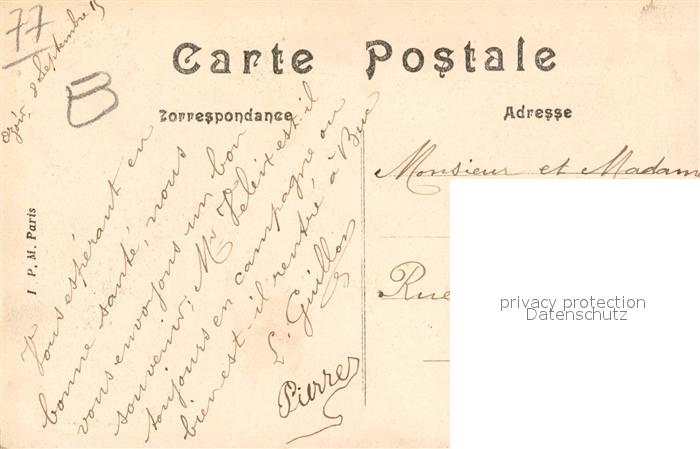 77
8 Septembre 15
B
Carte Postale
Correspondance
Adresse
Vous espérant en
bonne santé, nous
vous envoyons un bon
souvenir, Mr Felix est-il
toujours en campagne ou
bien est-il rentré à Buc
L. Guillon
Pierre
Monsieur et Madame
Rue
I P. M. Paris
privacy protection
Datenschutz